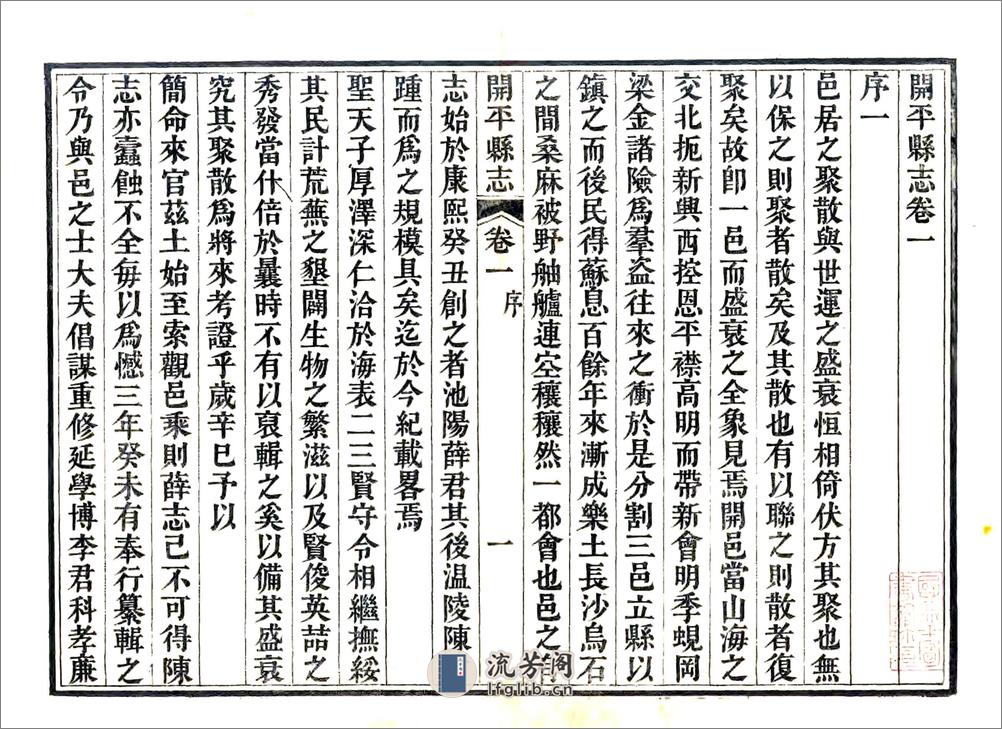 開平縣志卷一
序一
邑居之聚散與世運之盛衰恒相倚伏方其聚也無
以保之則聚者散矣及其散也有以聯之則散者復
聚矣故卽一邑而盛衰之全象見焉開邑當山海之
交北扼新興西控恩平襟高明而帶新會明季蜆岡
梁金諸險爲羣盗往來之衝於是分割三邑立縣以
鎮之而後民得蘇息百餘年來漸成樂土長沙烏石
之間桑麻被野舳艫連空穰穰然一都會也邑之
開平縣志
卷一
序
一
志始於康熙癸丑創之者池陽薛君其後温陵陳
踵而爲之規模具矣迄於今紀載畧焉
聖天子厚澤深仁洽於海表二三賢守令相繼撫綏
其民計荒蕪之墾闢生物之繁滋以及賢俊英喆之
秀發當什倍於曩時不有以裒輯之奚以備其盛衰
究其聚散爲將來考證乎歲辛巳予以
簡命來官茲土始至索觀邑乘則薛志已不可得陳
志亦蠹蝕不全每以爲憾三年癸未有奉行纂輯之
令乃與邑之士大夫倡謀重修延學博李君科孝亷
流芳阁
lfglib.cn